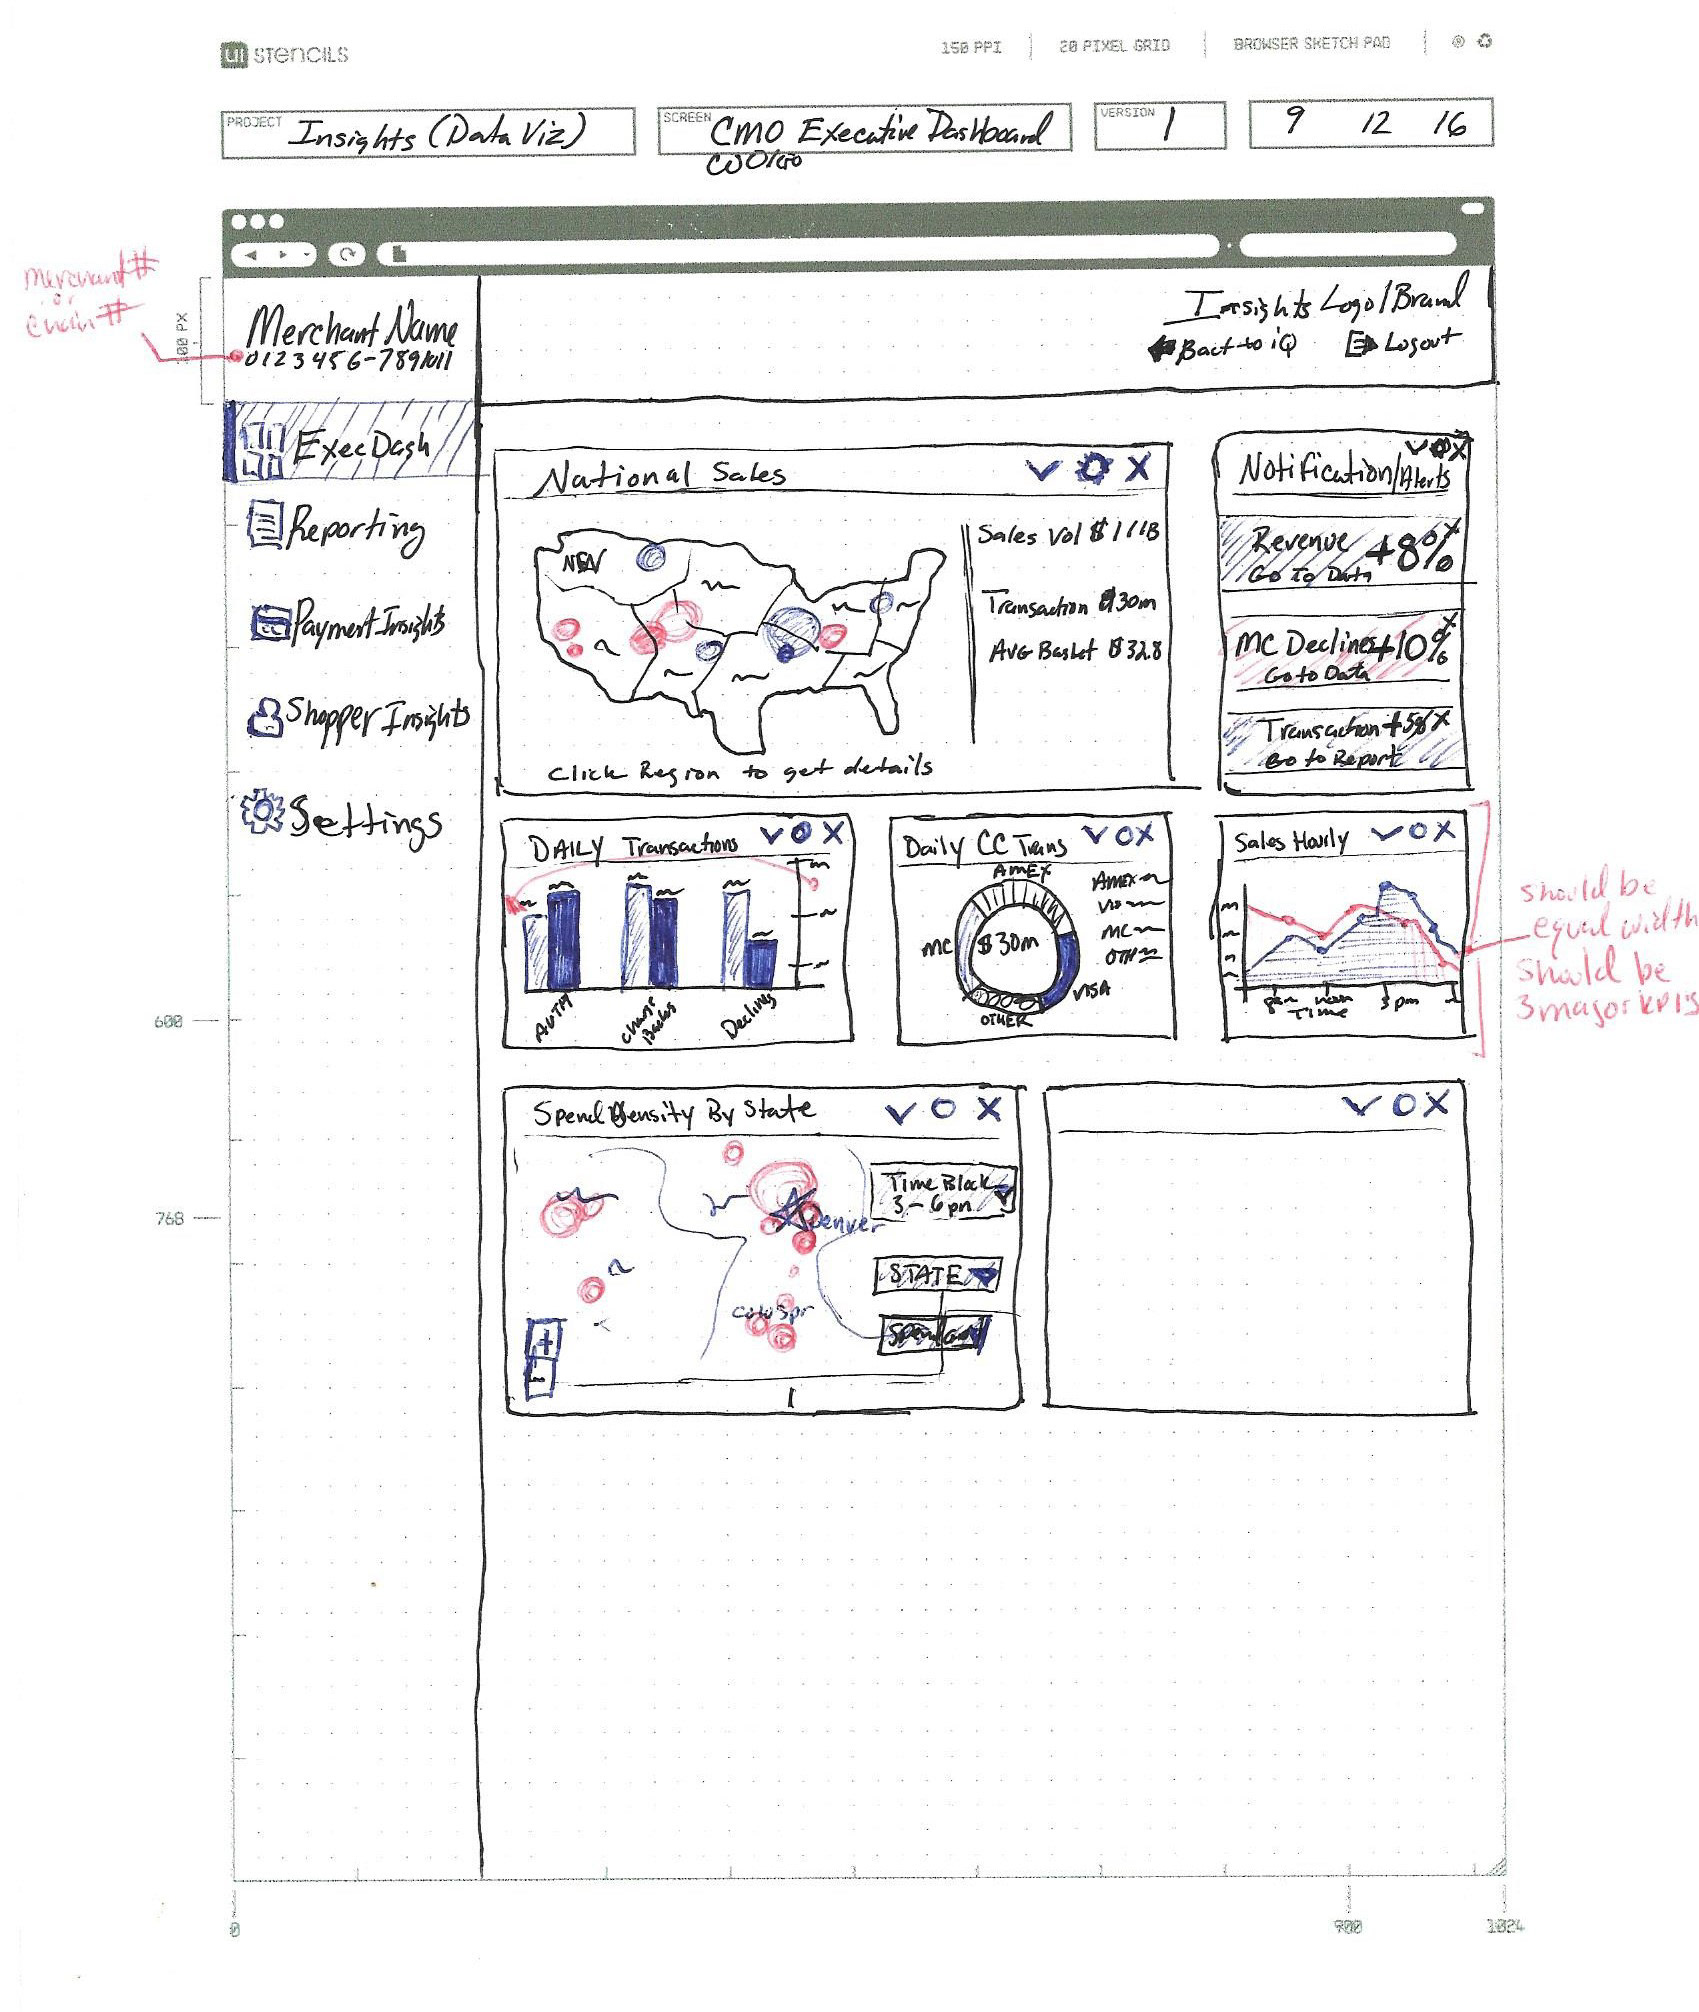 UI STENCILS
150 PPI
20 PIXEL GRID
BROWSER SKETCH PAD
PROJECT Insights (Data Viz)
SCREEN CMO Executive Dashboard
VERSION 1
9 12 16
merchant #
or
chain #
100 PX
Merchant Name
0123456-7891011
Insights Logo/Brand
Back to iQ
Logout
ExecDash
Reporting
Payment Insights
Shopper Insights
Settings
National Sales
Sales Vol $111B
Transaction $30m
Avg Basket $328
Click Region to get details
Notification/Alerts
Revenue +8%
Go To Data
MC Declines +10%
Go to Data
Transaction +5%
Go to Report
DAILY Transactions
AUTH
Charge
Backs
Declines
Daily CC Trans
AMEX
MC
$30m
VISA
OTHER
AMEX
MC
OTH
Sales Hourly
8am noon 3pm
Time
should be
equal width
should be
3 major KPI's
600
768
Spend Density By State
Denver
Colo Spr
Time Block
3-6pm
STATE
+
-
0
900
1024